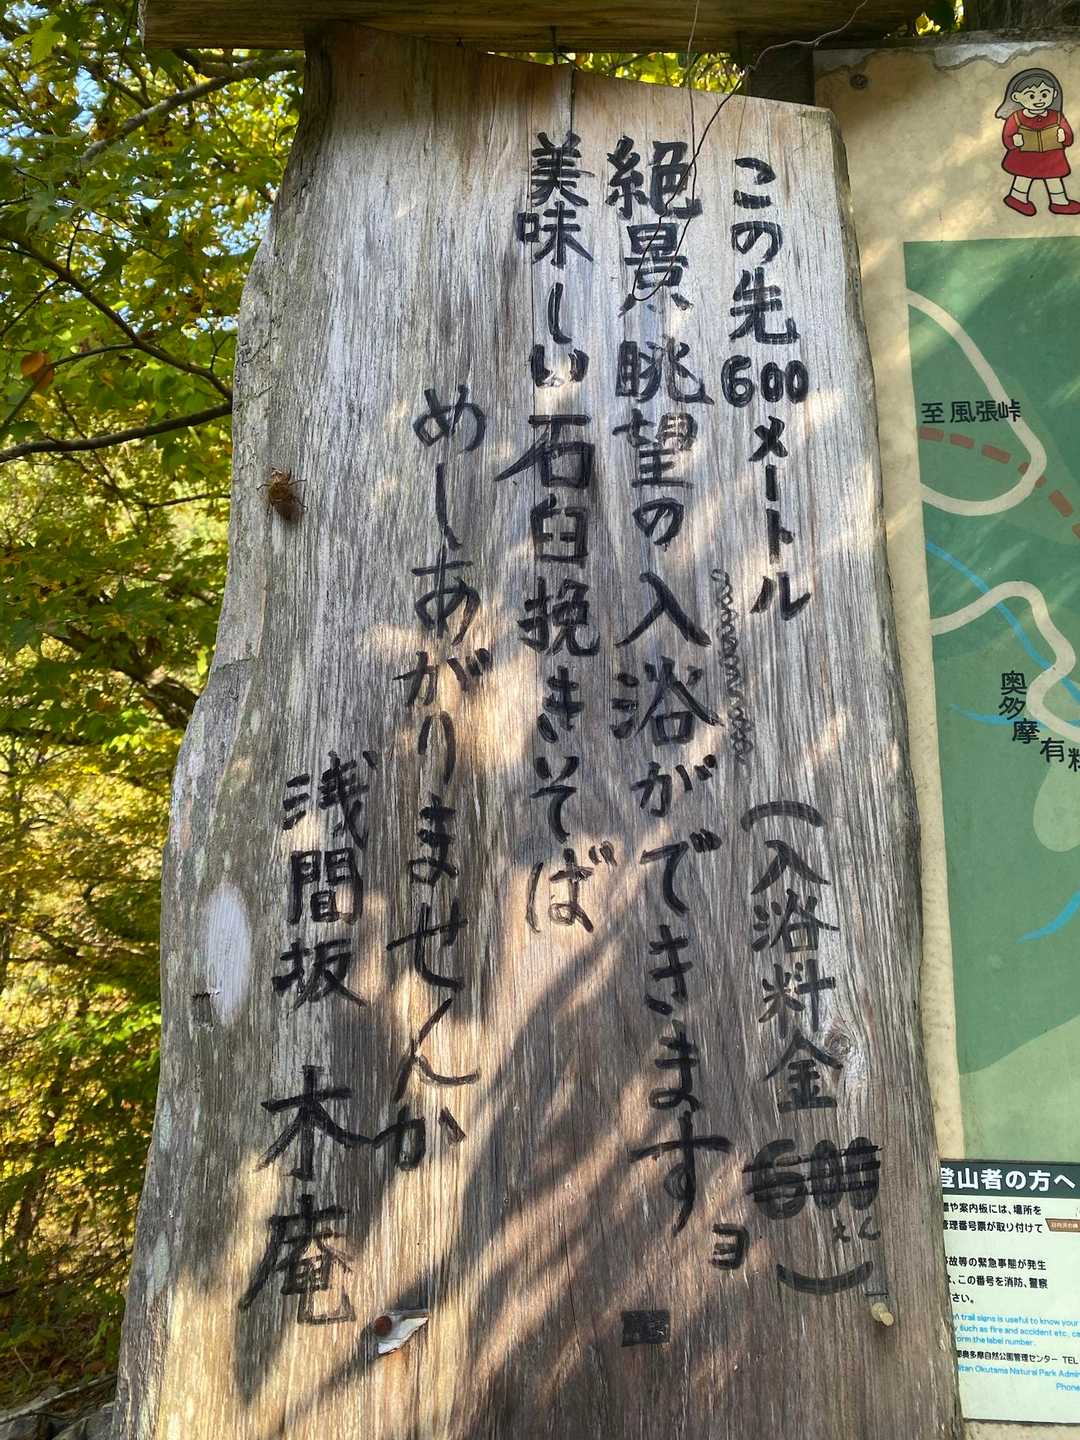 この先600メートル (入浴料金 600)
絶景眺望の入浴ができますヨ
美味しい石臼挽きそば
めしあがりませんか
浅間坂 木庵
至風張峠
奥多摩有料
登山者の方へ
や案内板には、場所を
管理番号票が取り付けて
故等の緊急事態が発生
、この番号を消防、警察
さい。
trail signs is useful to know your
(such as fire and accident etc, ca
form the label number.
都奥多摩自然公園管理センター TEL
litan Okutama Natural Park Admin
Phone